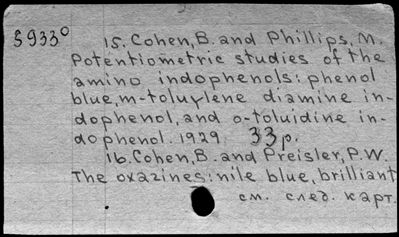 5933⁰
15. Cohen, B. and Phillips, M.
Potentiometric studies of the
amino indophenols: phenol
blue, m-toluylene diamine in-
dophenol, and o-toluidine in-
dophenol. 1929. 33 p.
16. Cohen, B. and Preisler, P.W.
The oxazines: nile blue, brilliant
см. след. карт.